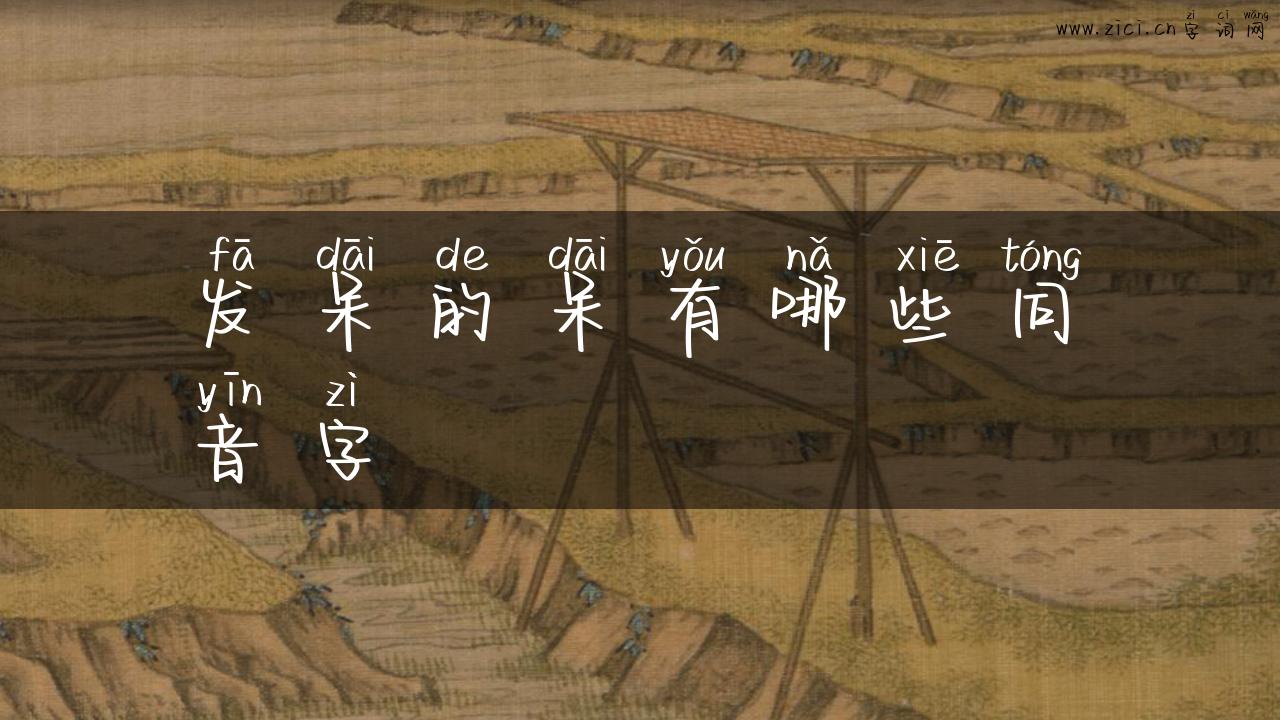 zì cí wǎng
www.zici.cn 字 词 网
fā dāi de dāi yǒu nǎ xiē tóng
发 呆 的 呆 有 哪 些 同
yīn zì
音 字